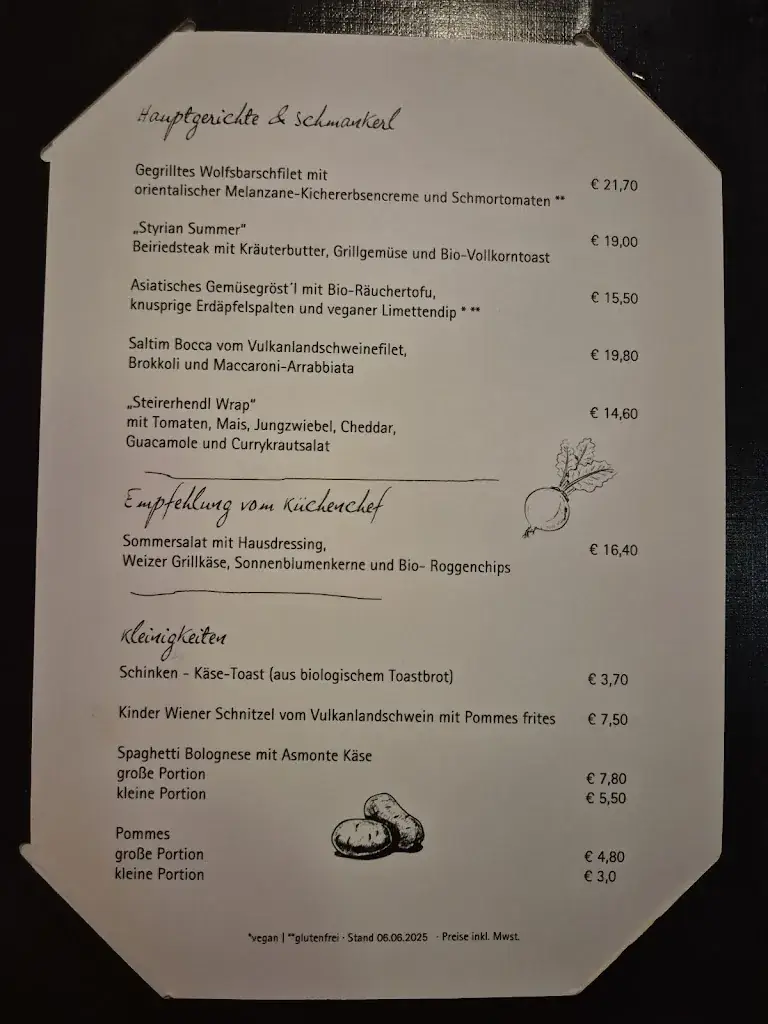 Hauptgerichte & Schmankerl
Gegrilltes Wolfsbarschfilet mit
orientalischer Melanzane-Kichererbsencreme und Schmortomaten **
€ 21,70
„Styrian Summer“
Beiriedsteak mit Kräuterbutter, Grillgemüse und Bio-Vollkorntoast
€ 19,00
Asiatisches Gemüsegröst´l mit Bio-Räuchertofu,
knusprige Erdäpfelspalten und veganer Limettendip * **
€ 15,50
Saltim Bocca vom Vulkanlandschweinefilet,
Brokkoli und Maccaroni-Arrabbiata
€ 19,80
„Steirerhendl Wrap“
mit Tomaten, Mais, Jungzwiebel, Cheddar,
Guacamole und Currykrautsalat
€ 14,60
Empfehlung vom Küchenchef
Sommersalat mit Hausdressing,
Weizer Grillkäse, Sonnenblumenkerne und Bio- Roggenchips
€ 16,40
Kleinigkeiten
Schinken - Käse-Toast (aus biologischem Toastbrot) € 3,70
Kinder Wiener Schnitzel vom Vulkanlandschwein mit Pommes frites € 7,50
Spaghetti Bolognese mit Asmonte Käse
große Portion € 7,80
kleine Portion € 5,50
Pommes
große Portion € 4,80
kleine Portion € 3,0
*vegan | **glutenfrei · Stand 06.06.2025 · Preise inkl. Mwst.